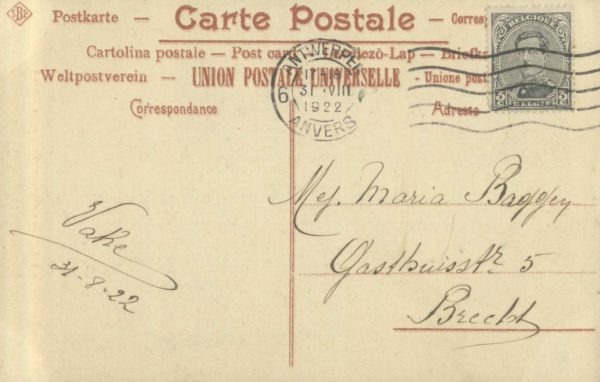 SBP
Postkarte – Carte Postale – Corres
Cartolina postale – Post car – Levelező-Lap – Briefka
Weltpostverein – UNION POSTALE UNIVERSELLE – Unione post
Correspondance
Adresse
ANTWERPEN
31 VIII
1922
6
ANVERS
BELGIQUE
5 5
BELGIE
Mej. Maria Baggen
Gasthuisstr 5
Brecht
31-8-22